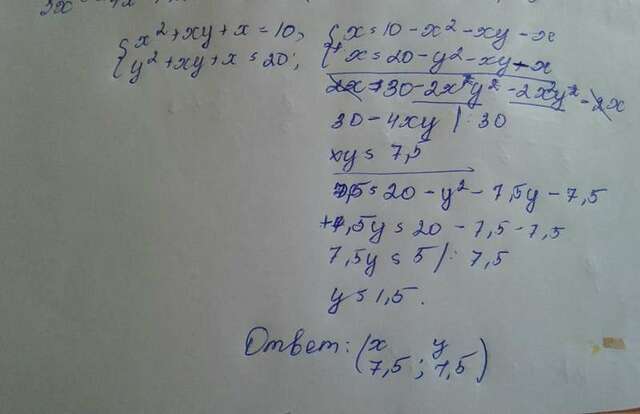 {x² + xy + x = 10,
{y² + xy + x = 20,
{x = 10 - x² - xy - x
+ x = 20 - y² - xy - x
30 - 4xy | : 30
xy = 7,5
7,5 = 20 - y² - 7,5y - 7,5
7,5y = 20 - 7,5 - 7,5
7,5y = 5 | : 7,5
y = 1,5.
Ответ: (x y
7,5 ; 1,5)